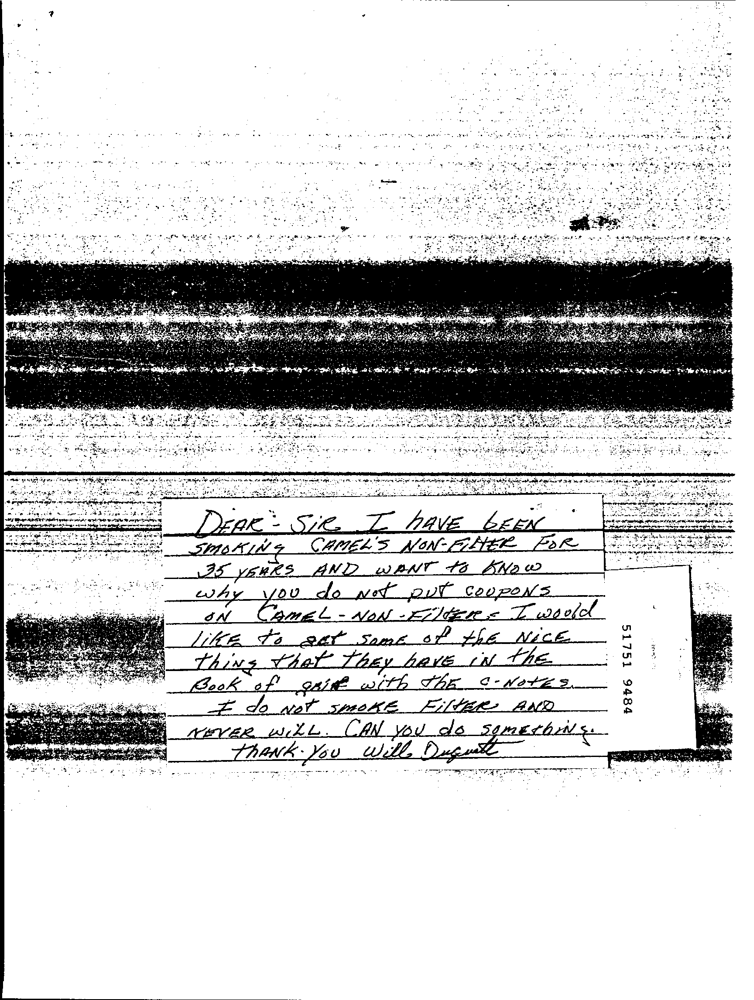 DEAR - SIR I hAVE bEEN
SMOKING CAMEL'S NON-FILTER FOR
35 YEARS AND WANT to KNOW
why you do Not put COUPONS
ON CAMEL - NON - FilTER = I woold
liKE to get SomE of thE NICE
thing that thEy hAVE iN thE
Book of with thE C-NotES.
I do Not SMOKE FilTER AND
NEVER WiLL. CAN you do SOMEthiNg.
thANK-you Will
51751 9484